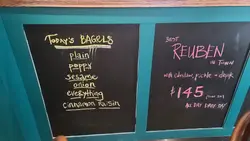 Today's BAGELS
plain
poppy
sesame
onion
everything
cinnamon raisin
BEST
REUBEN
IN TOWN
pickle + drink
$145
ALL DAY EVERY DAY